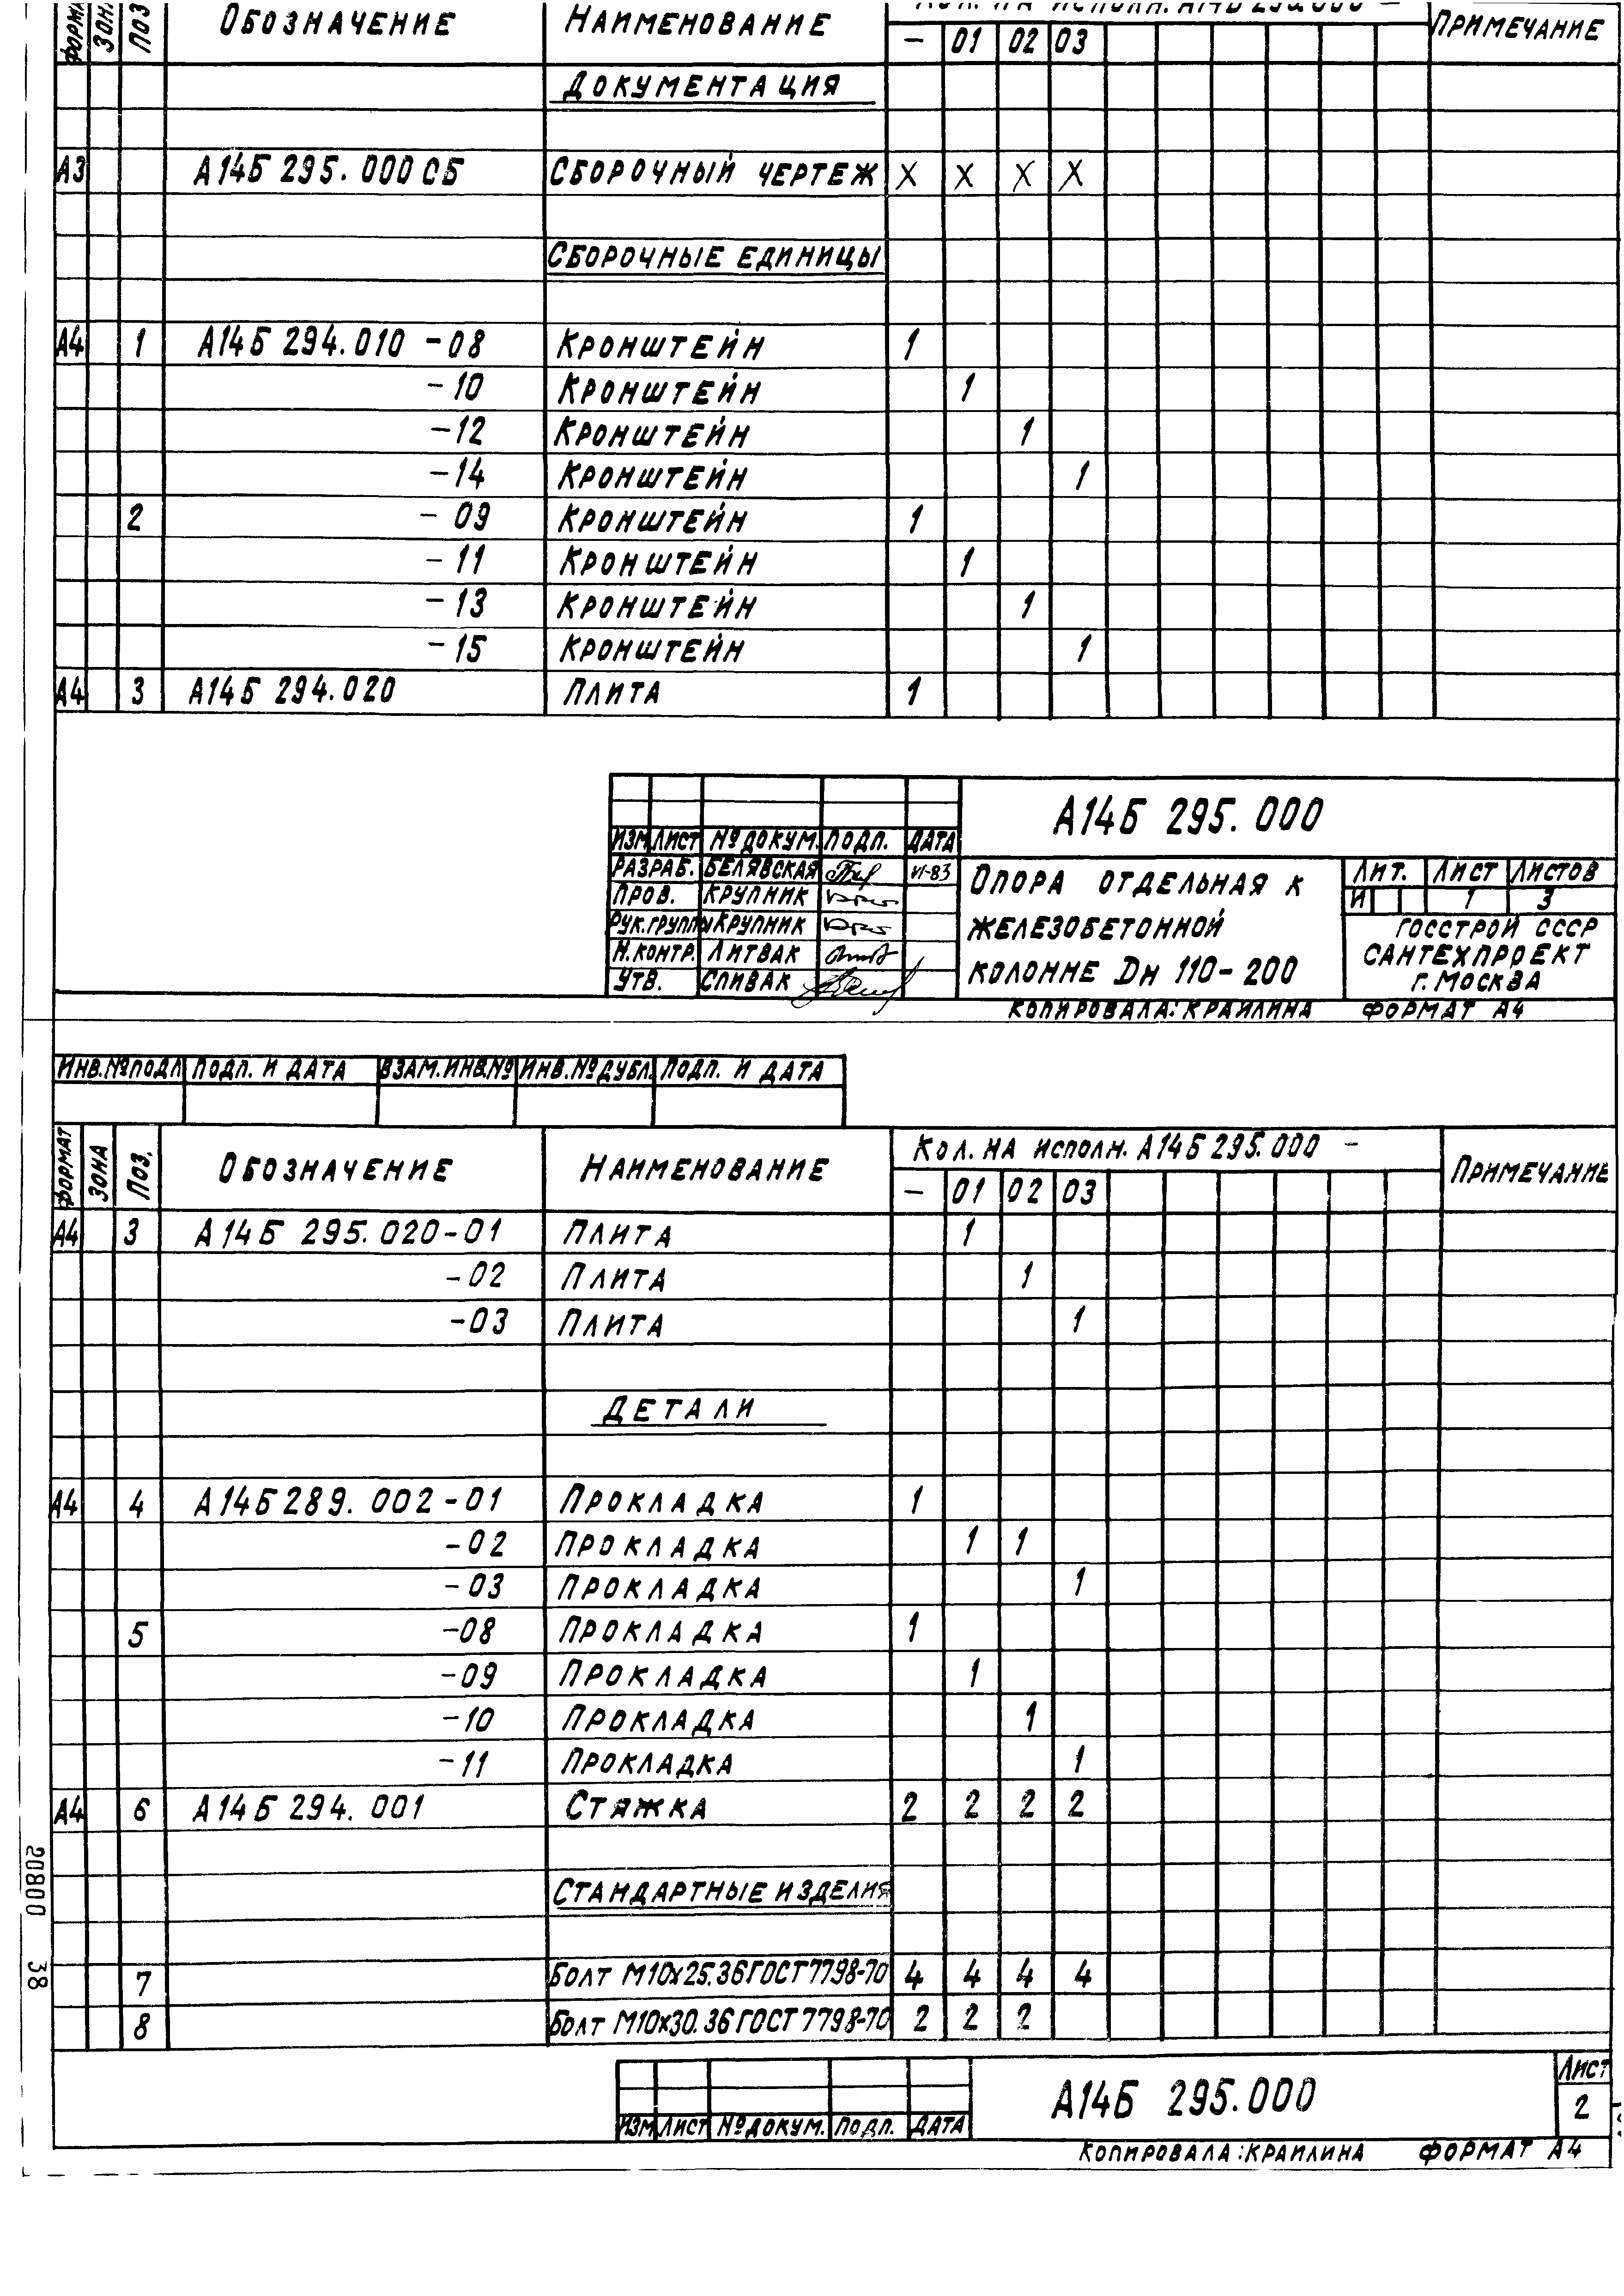 ФОРМАТ ЗОНА ПОЗ ОБОЗНАЧЕНИЕ НАИМЕНОВАНИЕ КОЛ. НА ИСПОЛН. А14Б 295.000 — ПРИМЕЧАНИЕ
— 01 02 03
ДОКУМЕНТАЦИЯ
А3 А14Б 295.000 СБ СБОРОЧНЫЙ ЧЕРТЕЖ X X X X
СБОРОЧНЫЕ ЕДИНИЦЫ
А4 1 А14Б 294.010 -08 КРОНШТЕЙН 1
-10 КРОНШТЕЙН 1
-12 КРОНШТЕЙН 1
-14 КРОНШТЕЙН 1
2 -09 КРОНШТЕЙН 1
-11 КРОНШТЕЙН 1
-13 КРОНШТЕЙН 1
-15 КРОНШТЕЙН 1
А4 3 А14Б 294.020 ПЛИТА 1
А14Б 295.000
ИЗМ ЛИСТ № ДОКУМ. ПОДП. ДАТА
РАЗРАБ. БЕЛЯВСКАЯ VI-83
ПРОВ. КРУПНИК
РУК.ГРУППЫ КРУПНИК
Н.КОНТР. ЛИТВАК
УТВ. СПИВАК
ОПОРА ОТДЕЛЬНАЯ К
ЖЕЛЕЗОБЕТОННОЙ
КОЛОННЕ Dн 110-200
ЛИТ. ЛИСТ ЛИСТОВ
И 1 3
ГОССТРОЙ СССР
САНТЕХПРОЕКТ
Г. МОСКВА
КОПИРОВАЛА: КРАИЛИНА ФОРМАТ А4
ИНВ.№ПОДЛ ПОДП. И ДАТА ВЗАМ.ИНВ.№ ИНВ.№ДУБЛ. ПОДП. И ДАТА
ФОРМАТ ЗОНА ПОЗ. ОБОЗНАЧЕНИЕ НАИМЕНОВАНИЕ КОЛ. НА ИСПОЛН. А14Б 295.000 — ПРИМЕЧАНИЕ
— 01 02 03
А4 3 А14Б 295.020-01 ПЛИТА 1
-02 ПЛИТА 1
-03 ПЛИТА 1
ДЕТАЛИ
А4 4 А14Б 289.002-01 ПРОКЛАДКА 1
-02 ПРОКЛАДКА 1 1
-03 ПРОКЛАДКА 1
5 -08 ПРОКЛАДКА 1
-09 ПРОКЛАДКА 1
-10 ПРОКЛАДКА 1
-11 ПРОКЛАДКА 1
А4 6 А14Б 294.001 СТЯЖКА 2 2 2 2
СТАНДАРТНЫЕ ИЗДЕЛИЯ
7 БОЛТ М10х25.36 ГОСТ 7798-70 4 4 4 4
8 БОЛТ М10х30.36 ГОСТ 7798-70 2 2 2
20800 38
А14Б 295.000
ЛИСТ
2
ИЗМ ЛИСТ № ДОКУМ. ПОДП. ДАТА
КОПИРОВАЛА: КРАИЛИНА ФОРМАТ А4